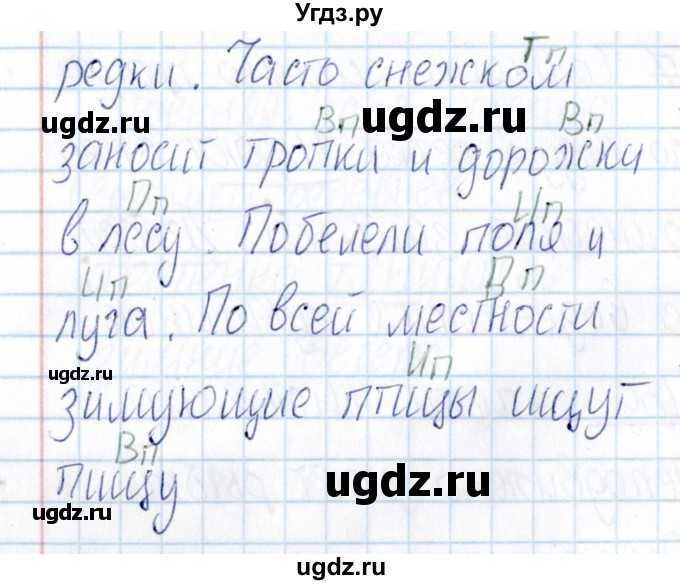 Угдз.ру
Тп
редки. Часто снежком
ugdz.ru ugdz.ru
Вп Вп
заносит тропки и дорожки
Пп Ип
в лесу. Побелели поля и
Ип Дп
луга. По всей местности
ugdz.ru
Ип
зимующие птицы ищут
Вп
пищу
ugdz.ru
ugdz.ru
ugdz.ru